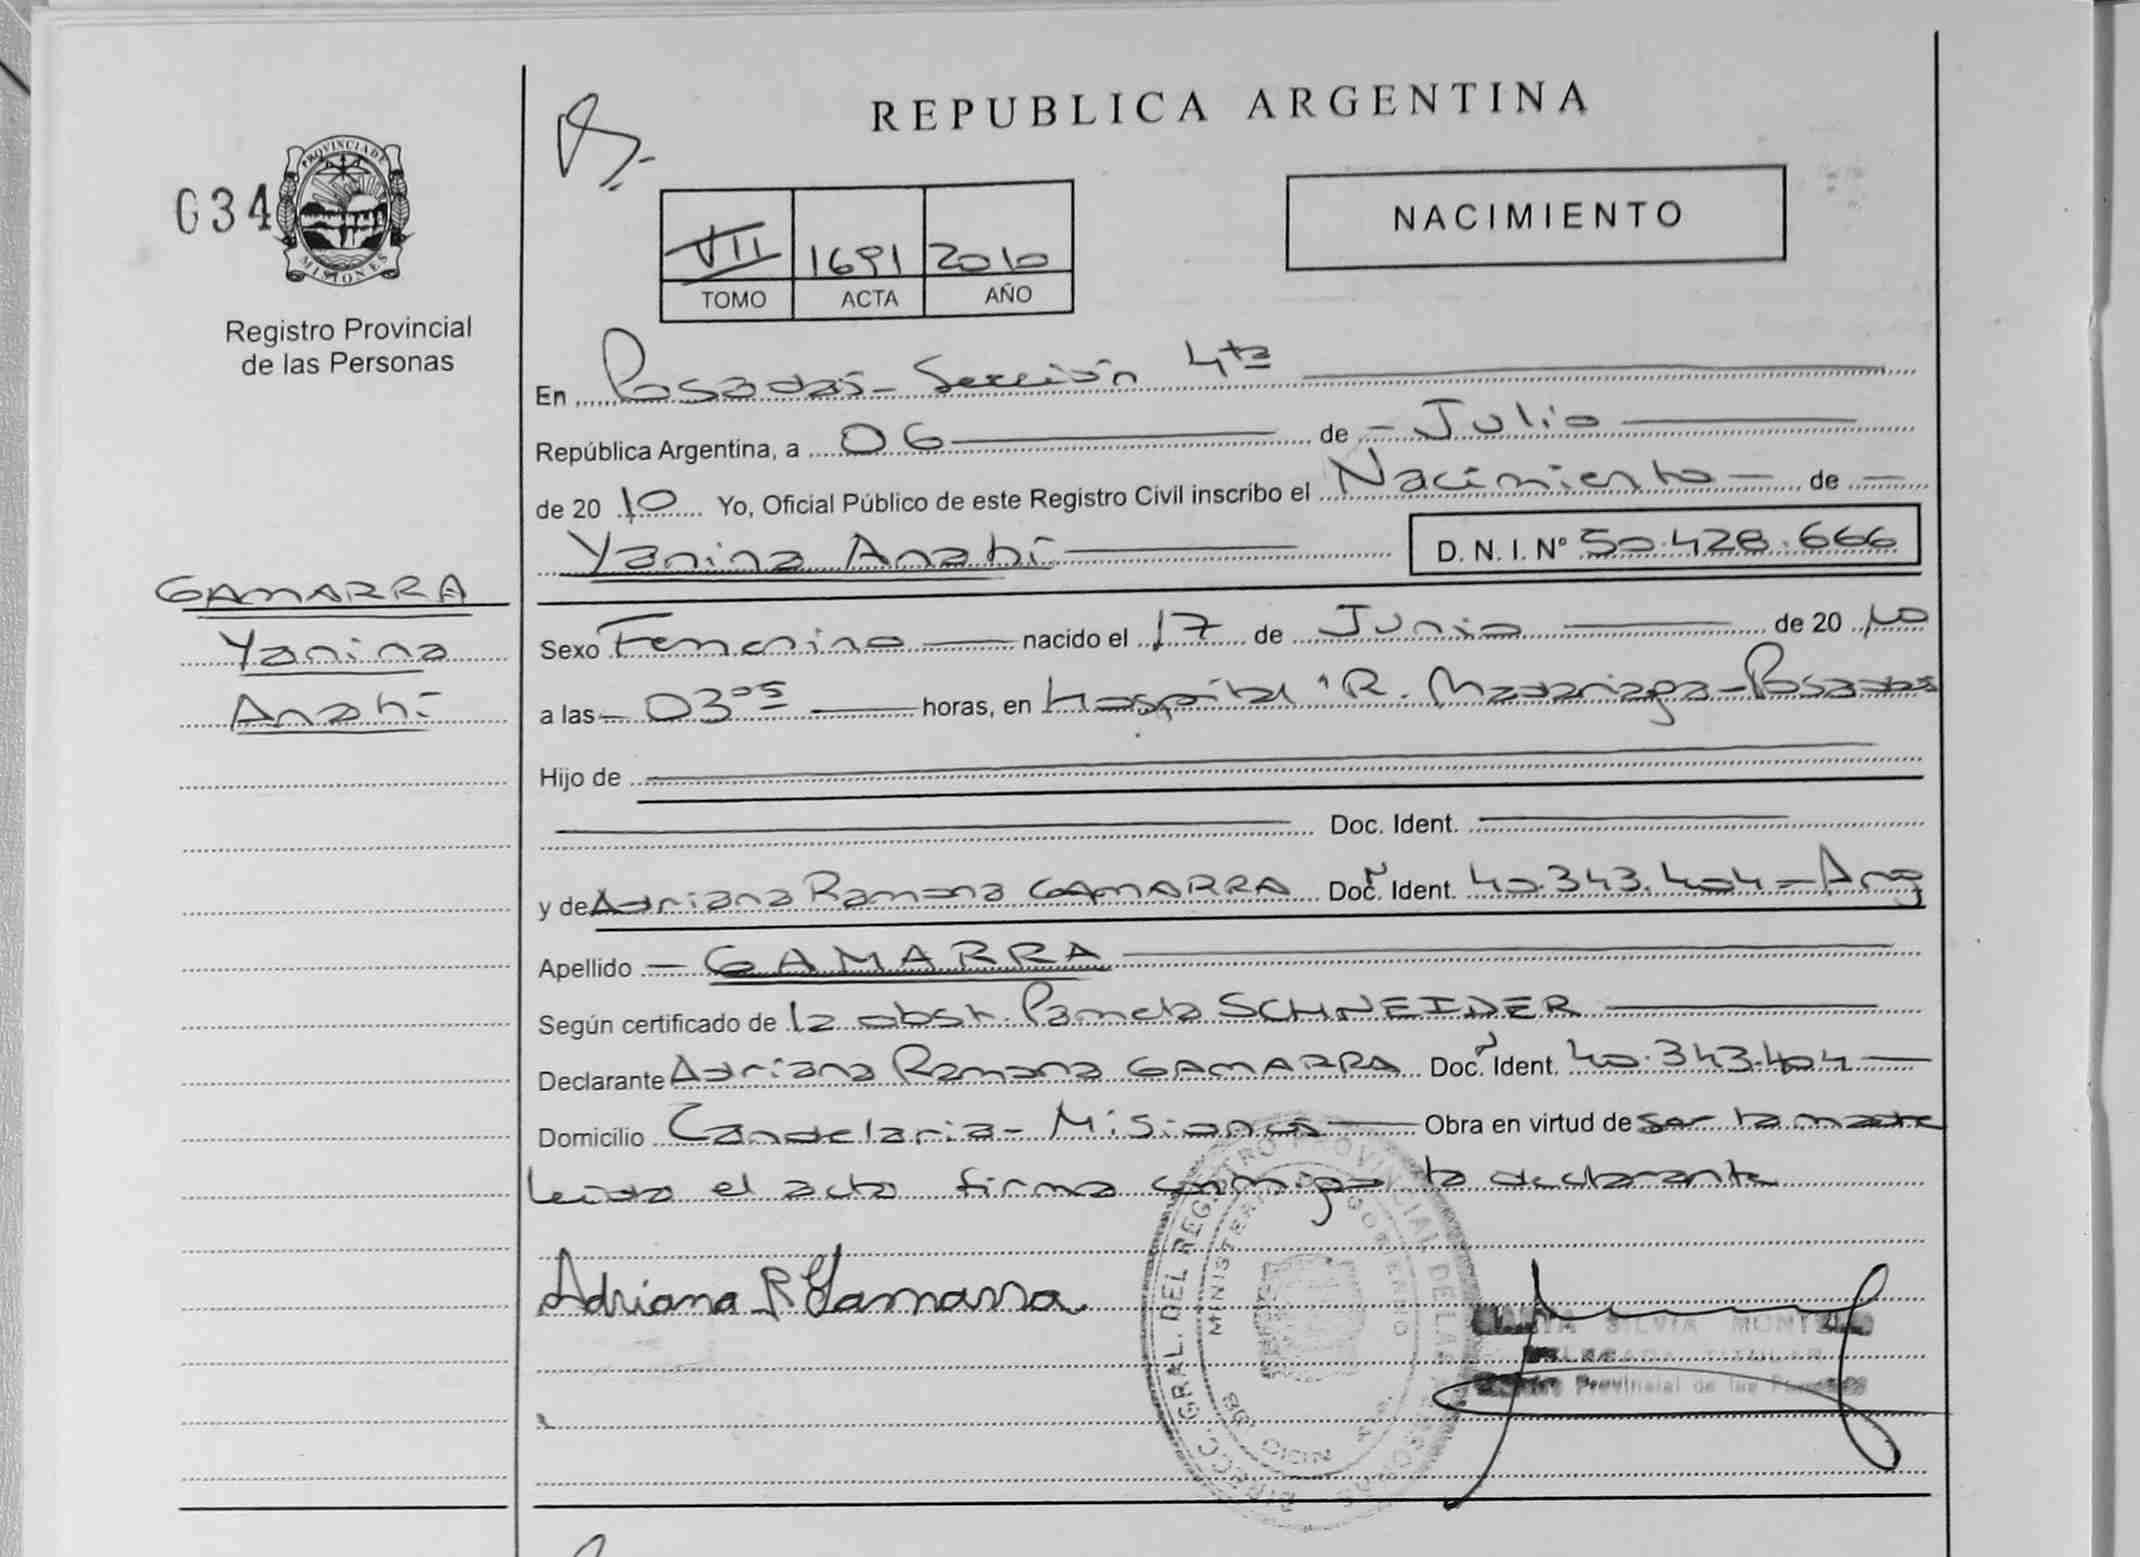 REPUBLICA ARGENTINA
034
PROVINCIA DE
MISIONES
Registro Provincial
de las Personas
VII 1691 2010
TOMO ACTA AÑO
NACIMIENTO
En Posadas - Sección 4ta
República Argentina, a 06 de - Julio
de 2010 Yo, Oficial Público de este Registro Civil inscribo el Nacimiento - de -
Yanina Anahí D. N. I. Nº 50.428.666
GAMARRA
Yanina
Anahí
Sexo Femenino nacido el 17 de Junio de 2010
a las - 03 05 horas, en Hospital "R. Madariaga - Posadas
Hijo de
Doc. Ident.
y de Adriana Ramona GAMARRA Doc. N Ident. 40.343.404 - Arg
Apellido - GAMARRA
Según certificado de la obst. Pamela SCHNEIDER
Declarante Adriana Ramona GAMARRA Doc. N Ident. 40.343.404
Domicilio Candelaria - Misiones Obra en virtud de ser la madre
leido el acta firma conmigo la declarante
Adriana R Gamarra
GRAL. DEL REGISTRO PROVINCIAL DE LAS PERSONAS
MINISTERIO GOBIERNO
SILVIA
TITULAR
Provincial de las Personas